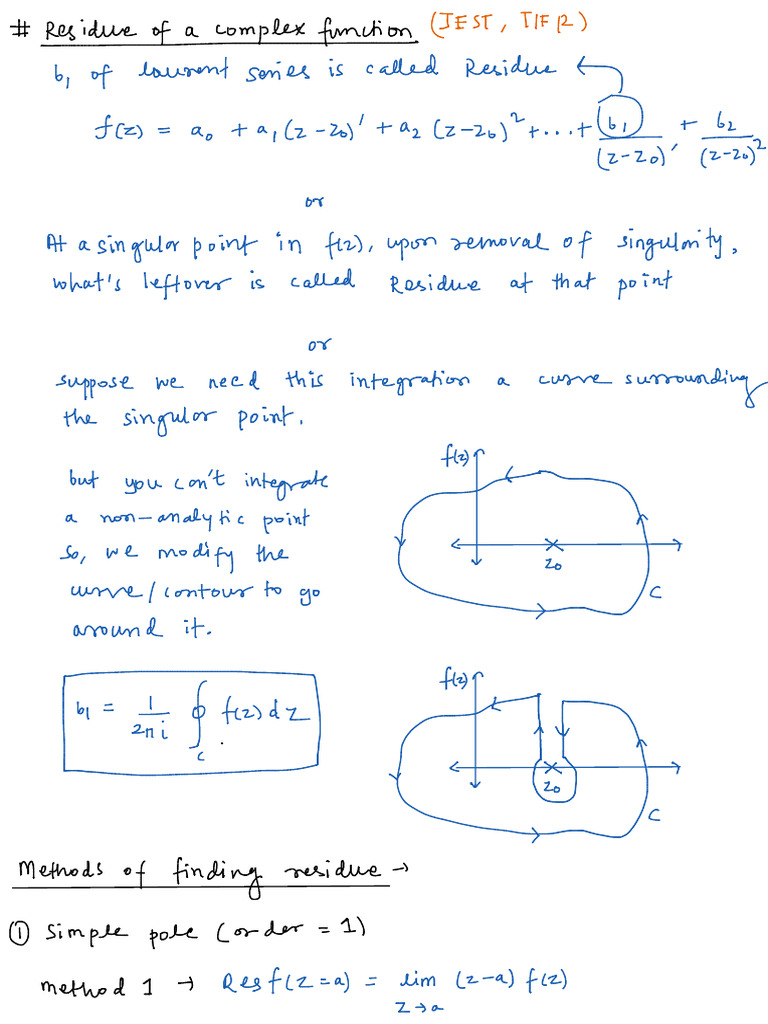 # Residue of a complex function (JEST, TIFR)
b₁ of laurent series is called Residue ←
f(z) = a₀ + a₁(z-z₀)' + a₂(z-z₀)² + ... + b₁/(z-z₀)' + b₂/(z-z₀)²
or
At a singular point in f(z), upon removal of singularity,
what's leftover is called Residue at that point
or
suppose we need this integration a curve surrounding
the singular point.
but you can't integrate
a non-analytic point
so, we modify the
curve/contour to go
around it.
f(z)
z₀
C
b₁ = 1/2πi ∮_c f(z) dz
f(z)
z₀
C
Methods of finding residue →
① Simple pole (order = 1)
method 1 → Res f(z=a) = lim (z-a) f(z)
z→a